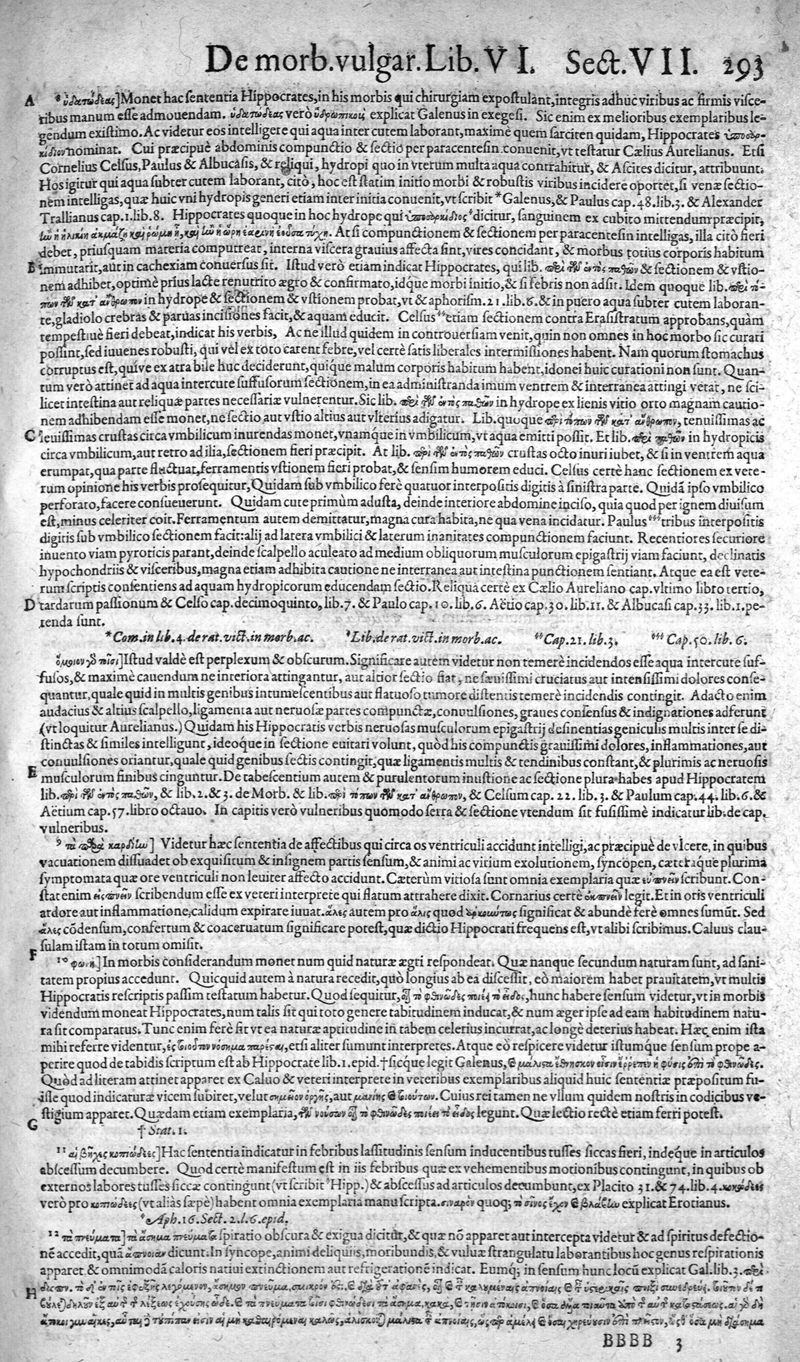 De morb. vulgar. Lib. VI. Sect. VII. 293
A ὑδατώδεας] Monet hac sententia Hippocrates, in his morbis qui chirurgiam expostulant, integris adhuc viribus ac firmis visce-
ribus manum esse admouendam. ὑδατώδεας verò explicat Galenus in exegesi. Sic enim ex melioribus exemplaribus le-
gendum existimo. Ac videtur eos intelligere qui aqua inter cutem laborant, maximè quem sarciten quidam, Hippocrates
nominat. Cui præcipuè abdominis compunctio & sectio per paracentesin conuenit, vt testatur Cælius Aurelianus. Etsi
Cornelius Celsus, Paulus & Albucasis, & reliqui, hydropi quo in vterum multa aqua contrahitur, & Ascites dicitur, attribuunt.
Hos igitur qui aqua subter cutem laborant, citò, hoc est statim initio morbi & robustis viribus incidere oportet, si venæ sectio-
nem intelligas, quæ huic vni hydropis generi etiam inter initia conuenit, vt scribit *Galenus, & Paulus cap. 48. lib. 3. & Alexander
Trallianus cap. 1. lib. 8. Hippocrates quoque in hoc hydrope qui dicitur, sanguinem ex cubito mittendum præcipit,
At si compunctionem & sectionem per paracentesin intelligas, illa citò fieri
debet, priusquam materia computreat, interna viscera grauius affecta sint, vires concidant, & morbus totius corporis habitum
B immutarit, aut in cachexiam conuersus sit. Istud verò etiam indicat Hippocrates, qui lib. & sectionem & vstio-
nem adhibet, optimè prius lacte renutrito ægro & confirmato, idque morbi initio, & si febris non adsit. Idem quoque lib.
in hydrope & sectionem & vstionem probat, vt & aphorism. 21. lib. 6. & in puero aqua subter cutem laboran-
te, gladiolo crebras & paruas incisiones facit, & aquam educit. Celsus etiam sectionem contra Erasistratum approbans, quàm
tempestiuè fieri debeat, indicat his verbis, Ac ne illud quidem in controuersiam venit, quin non omnes in hoc morbo sic curari
possint, sed iuuenes robusti, qui vel ex toto carent febre, vel certè satis liberales intermissiones habent. Nam quorum stomachus
corruptus est, quive ex atra bile huc deciderunt, quique malum corporis habitum habent, idonei huic curationi non sunt. Quan-
tum verò attinet ad aqua intercute suffusorum sectionem, in ea administranda imum ventrem & interranea attingi vetat, ne sci-
licet intestina aut reliquæ partes necessariæ vulnerentur. Sic lib. in hydrope ex lienis vitio orto magnam cautio-
nem adhibendam esse monet, ne sectio aut vstio altius aut vlterius adigatur. Lib. quoque tenuissimas ac
C leuissimas crustas circa vmbilicum inurendas monet, vnamque in vmbilicum, vt aqua emitti possit. Et lib. in hydropicis
circa vmbilicum, aut retro ad ilia, sectionem fieri præcipit. At lib. crustas octo inuri iubet, & si in ventrem aqua
erumpat, qua parte fluctuat, ferramentis vstionem fieri probat, & sensim humorem educi. Celsus certè hanc sectionem ex vete-
rum opinione his verbis prosequitur, Quidam sub vmbilico ferè quatuor interpositis digitis à sinistra parte. Quidã ipso vmbilico
perforato, facere consueuerunt. Quidam cute primùm adusta, deinde interiore abdomine inciso, quia quod per ignem diuisum
est, minus celeriter coit. Ferramentum autem demittatur, magna cura habita, ne qua vena incidatur. Paulus tribus interpositis
digitis sub vmbilico sectionem facit: alij ad latera vmbilici & laterum inanitates compunctionem faciunt. Recentiores securiore
inuento viam pyroticis parant, deinde scalpello aculeato ad medium obliquorum musculorum epigastrij viam faciunt, declinatis
hypochondriis & visceribus, magna etiam adhibita cautione ne interranea aut intestina punctionem sentiant. Atque ea est vete-
rum scriptis consentiens ad aquam hydropicorum educendam sectio. Reliquà certè ex Cælio Aureliano cap. vltimo libro tertio,
D tardarum passionum & Celso cap. decimoquinto, lib. 7. & Paulo cap. 10. lib. 6. Aëtio cap. 30. lib. 11. & Albucasi cap. 33. lib. 1. pe-
tenda sunt.
*Com. in lib. 4. de rat. vict. in morb. ac. Lib. de rat. vict. in morb. ac. Cap. 21. lib. 3. Cap. 50. lib. 6.
Istud valdè est perplexum & obscurum. Significare autem videtur non temerè incidendos esse aqua intercute suf-
fusos, & maximè cauendum ne interiora attingantur, aut altior sectio fiat, ne sæuissimi cruciatus aut intensissimi dolores conse-
quantur, quale quid in multis genibus intumescentibus aut flatuoso tumore distentis temerè incidendis contingit. Adacto enim
audacius & altius scalpello, ligamenta aut neruosæ partes compunctæ, conuulsiones, graues consensus & indignationes adferunt
(vt loquitur Aurelianus.) Quidam his Hippocratis verbis neruosas musculorum epigastrij desinentias geniculis multis inter se di-
stinctas & similes intelligunt, ideoque in sectione euitari volunt, quòd his compunctis grauissimi dolores, inflammationes, aut
conuulsiones oriantur, quale quid genibus sectis contingit, quæ ligamentis multis & tendinibus constant, & plurimis ac neruosis
E musculorum finibus cinguntur. De tabescentium autem & purulentorum inustione ac sectione plura habes apud Hippocratem
lib. & lib. 2. & 3. de Morb. & lib. & Celsum cap. 22. lib. 3. & Paulum cap. 44. lib. 6. &
Aëtium cap. 57. libro octauo. In capitis verò vulneribus quomodo serra & sectione vtendum sit fusissimè indicatur lib. de cap.
vulneribus.
9 Videtur hæc sententia de affectibus qui circa os ventriculi accidunt intelligi, ac præcipuè de vlcere, in quibus
vacuationem dissuadet ob exquisitum & insignem partis sensum, & animi ac vitium exolutionem, syncopen, cæteraque plurima
symptomata quæ ore ventriculi non leuiter affecto accidunt. Cæterùm vitiosa sunt omnia exemplaria quæ scribunt. Con-
stat enim scribendum esse ex veteri interprete qui flatum attrahere dixit. Cornarius certè legit. Et in oris ventriculi
ardore aut inflammatione, calidum expirare iuuat. ἅλες autem pro ἅλις quod significat & abundè ferè omnes sumũt. Sed
ἅλες cõdensum, confertum & coaceruatum significare potest, quæ dictio Hippocrati frequens est, vt alibi scribimus. Caluus clau-
sulam istam in totum omisit.
F
10 In morbis considerandum monet num quid naturæ ægri respondeat. Quæ nanque secundum naturam sunt, ad sani-
tatem propius accedunt. Quicquid autem à natura recedit, quò longius ab ea discessit, eò maiorem habet prauitatem, vt multis
Hippocratis rescriptis passim testatum habetur. Quod sequitur, hunc habere sensum videtur, vt in morbis
videndum moneat Hippocrates, num talis sit qui toto genere tabitudinem inducat, & num æger ipse ad eam habitudinem natu-
ra sit comparatus. Tunc enim ferè sit vt ea naturæ aptitudine in tabem celerius incurrat, ac longè deterius habeat. Hæc enim ista
mihi referre videntur, etsi aliter sumunt interpretes. Atque eò respicere videtur istumque sensum prope a-
perire quod de tabidis scriptum est ab Hippocrate lib. 1. epid. † sicque legit Galenus,
Quòd ad literam attinet apparet ex Caluo & veteri interprete in veteribus exemplaribus aliquid huic sententiæ præpositum fu-
isse quod indicaturæ vicem subiret, velut Cuius rei tamen ne vllum quidem nostris in codicibus ve-
stigium apparet. Quædam etiam exemplaria, legunt. Quæ lectio rectè etiam ferri potest.
G † Stat. 1.
11 Hac sententia indicatur in febribus lassitudinis sensum inducentibus tusses siccas fieri, indeque in articulos
abscessum decumbere. Quod certè manifestum est in iis febribus quæ ex vehementibus motionibus contingunt, in quibus ob
externos labores tusses siccæ contingunt (vt scribit *Hipp.) & abscessus ad articulos decumbunt, ex Placito 31. & 74. lib. 4.
verò pro κοπιώδεες (vt aliàs sæpè) habent omnia exemplaria manuscripta. explicat Erotianus.
*Aph. 16. Sect. 2. l. 6. epid.
12 spiratio obscura & exigua dicitur, & quæ nõ apparet aut intercepta videtur & ad spiritus defectio-
nẽ accedit, quã dicunt. In syncope, animi deliquiis, moribundis, & vuluæ strangulatu laborantibus hoc genus respirationis
apparet & omnimodã caloris natiui extinctionem aut refrigerationẽ indicat. Eumq; in sensum hunc locũ explicat Gal. lib. 3.
H
BBBB 3